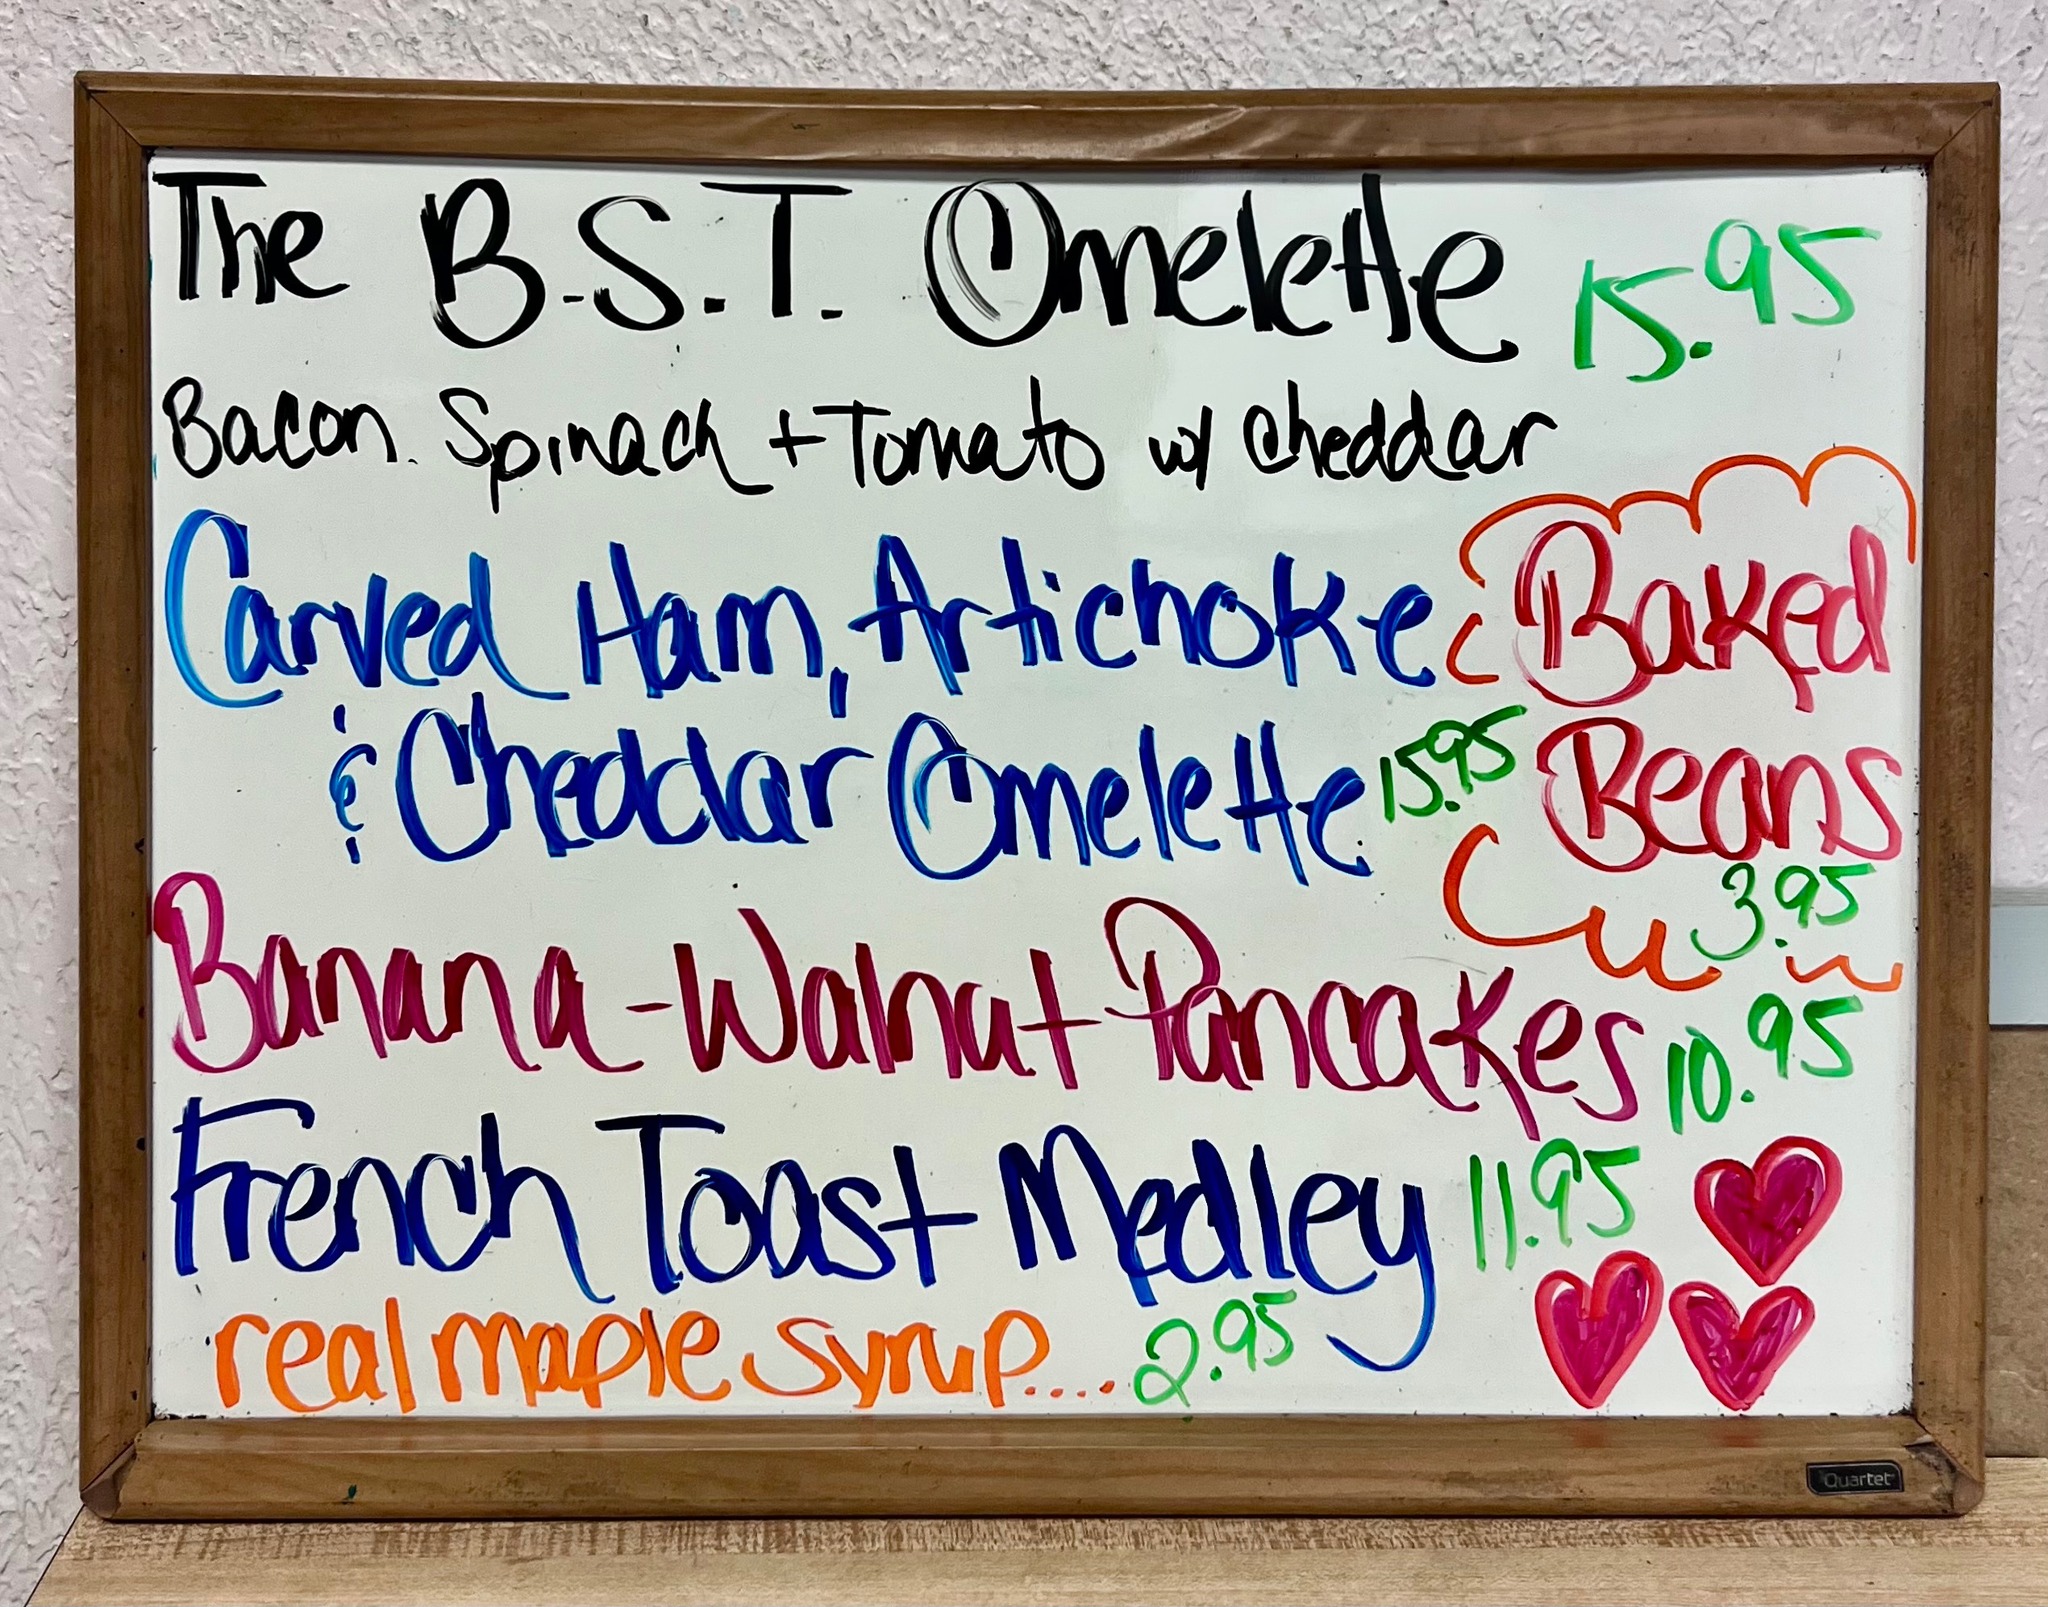 The B.S.T. Omelette 15.95
Bacon. Spinach + Tomato w/ cheddar
Carved Ham, Artichoke
& Cheddar Omelette 15.95
Baked
Beans
3.95
Banana-Walnut Pancakes 10.95
French Toast Medley 11.95
real maple syrup.... 2.95
Quartet